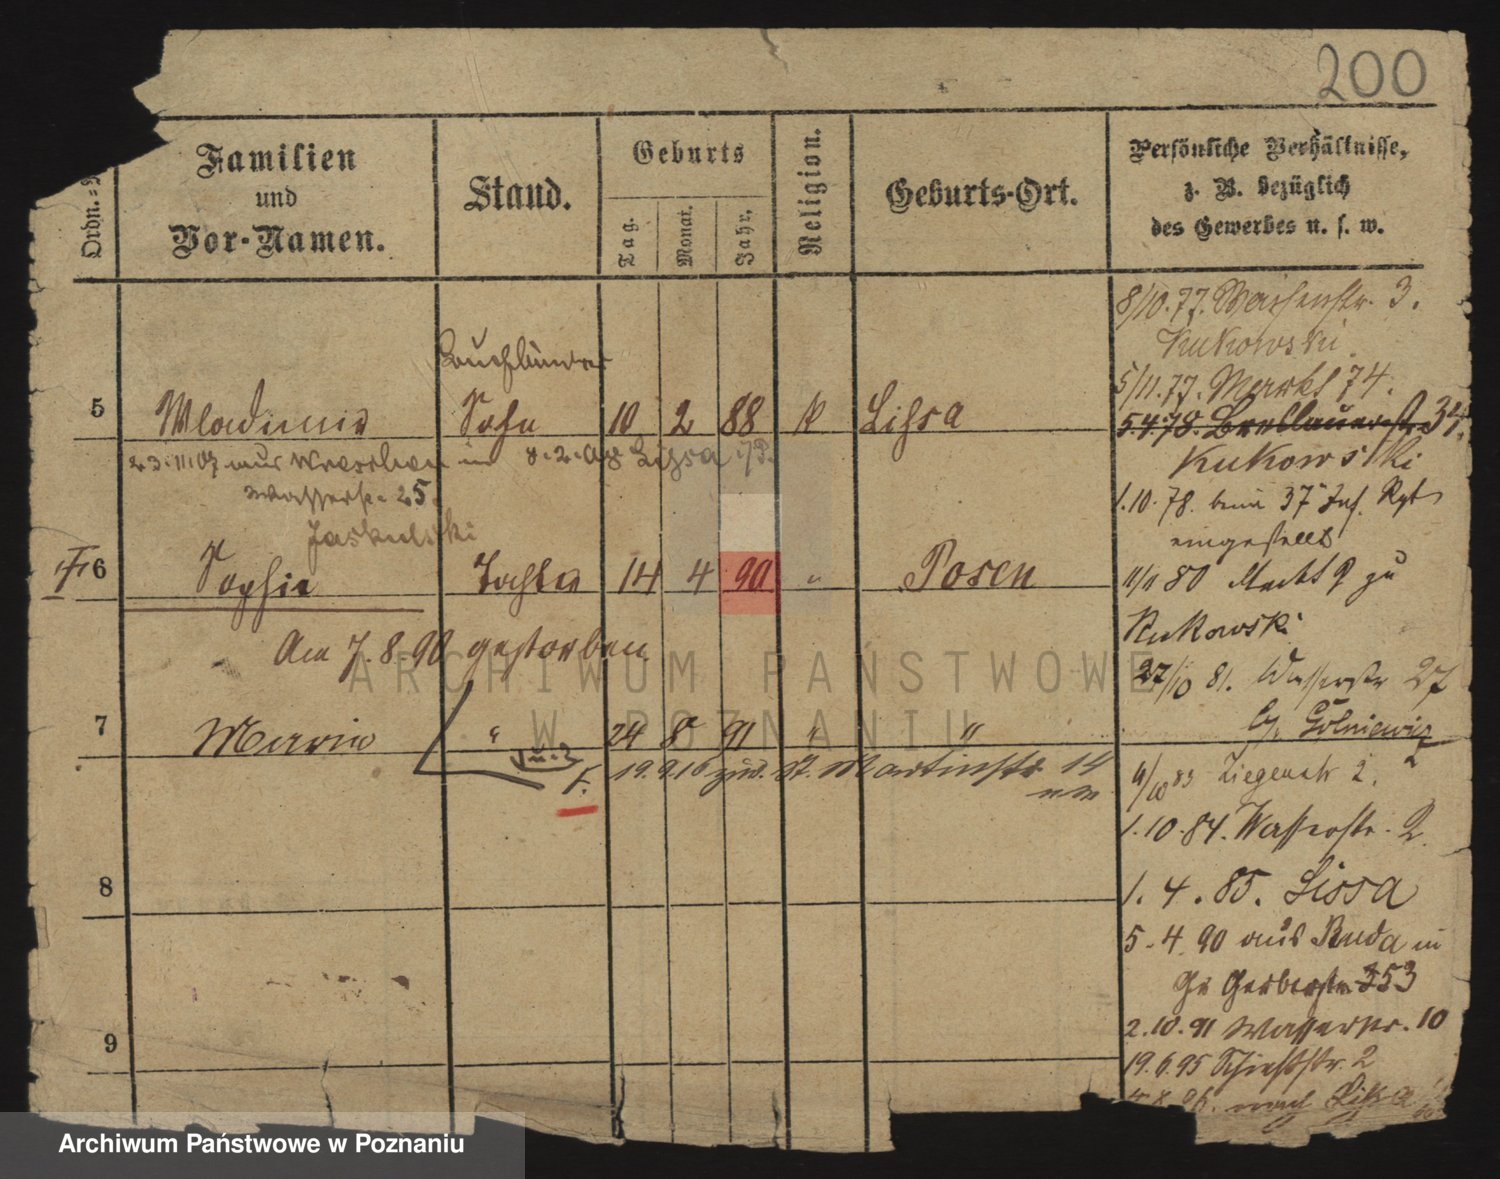 200
Ordn.=
Familien
und
Vor-Namen.
Stand.
Geburts
Tag.
Monat.
Jahr.
Religion.
Geburts-Ort.
Persönliche Verhältnisse,
z. B. bezüglich
des Gewerbes u. s. w.
5
Wladimir
Buchbinder
Sohn
10
2
88
K
Lissa
23.11.07 aus Wreschen in
Lissa
Wasserstr. 25
Jaskulski
6
Sophie
Tochter
14
4
90
"
Posen
Am 7.8.90 gestorben
7
Maria
"
24
8
91
"
"
F.
19.9.16 St. Martinstr 14
8
9
8/10.77. Waisenstr. 3.
Kukowski.
5/11.77. Markt 74.
5.4.78. Breslauerstr. 34.
Kukowski
1.10.78. beim 37 Inf. Rgt
eingestellt
11/11 80 Markt 9 zu
Kukowski
27/10 81. Wasserstr 27
4/10 83 Ziegenstr 2.
1.10.84. Wasserstr. 2.
1.4.85. Lissa
5.4.90 aus Ruda in
Gr Gerberstr. 353
2.10.91 Wasserstr. 10
19.6.95 Schießstr. 2
96. nach Lissa
ARCHIWUM PAŃSTWOWE
W POZNANIU
Archiwum Państwowe w Poznaniu